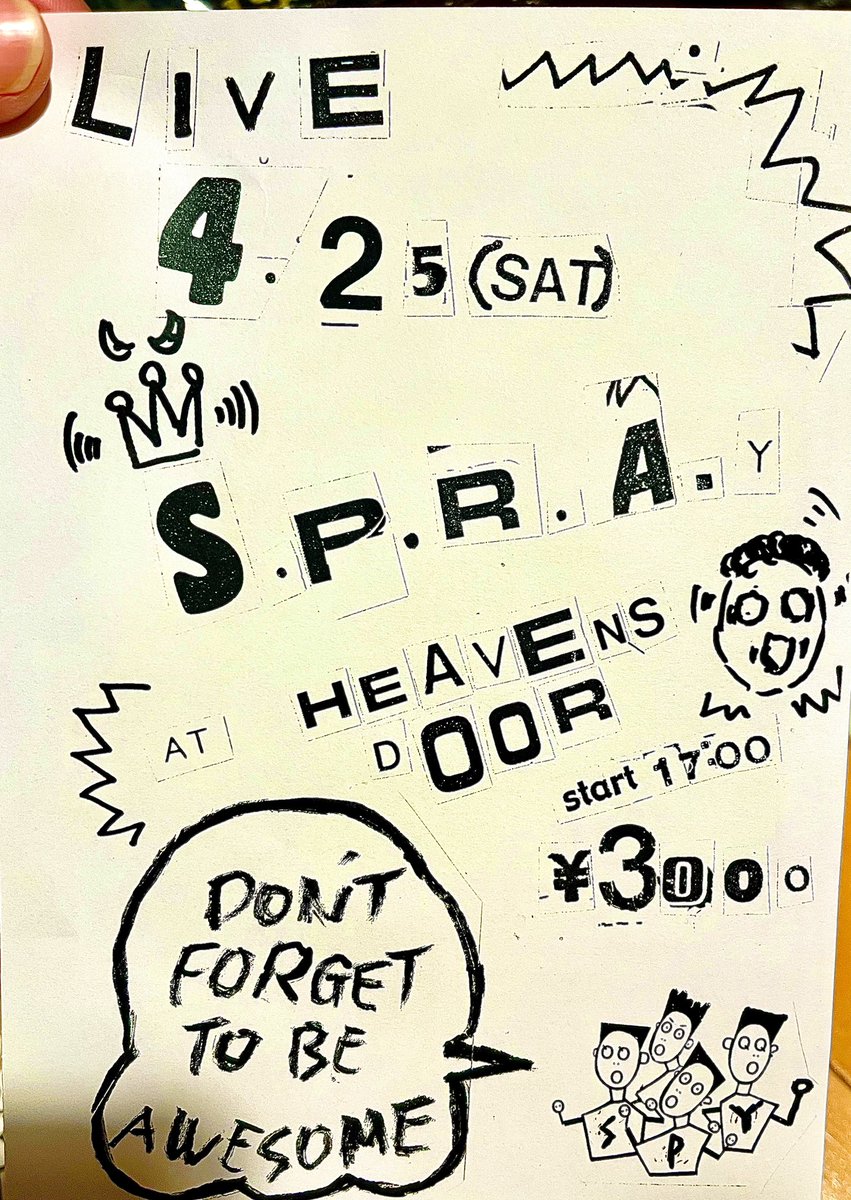 LIVE
4.25(SAT)
S.P.R.A.Y
AT HEAVENS
DOOR
start 17:00
¥3000
DON'T
FORGET
TO BE
AWESOME
S P Y